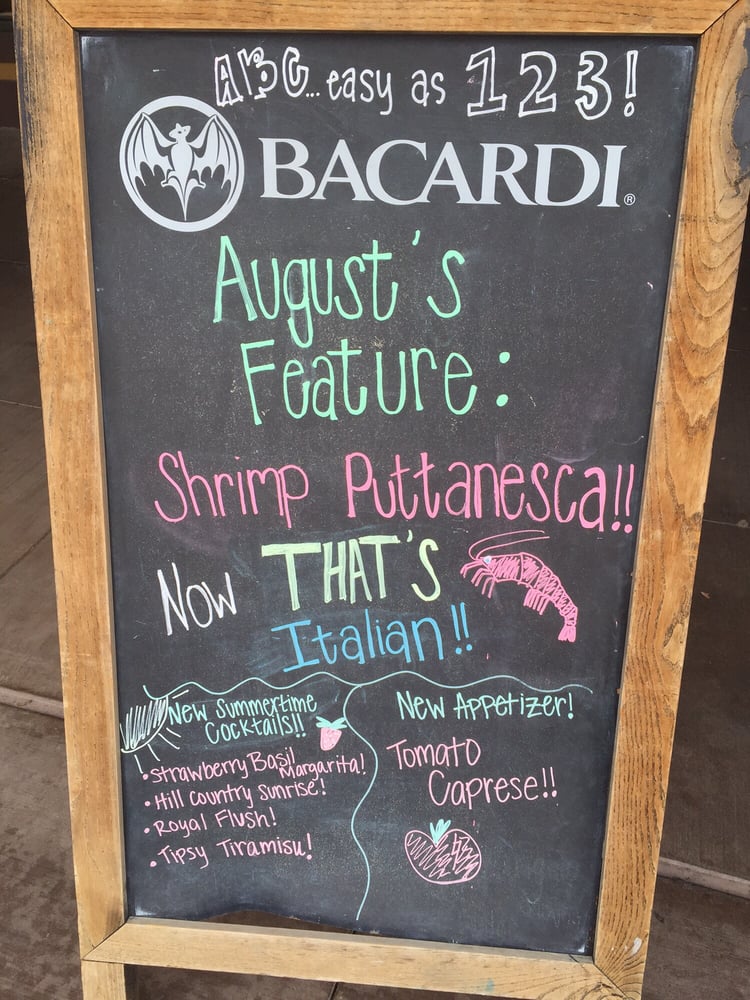 ABC... easy as 123!
BACARDI®
August's
Feature:
Shrimp Puttanesca!!
Now THAT'S
Italian!!
New Summertime
Cocktails!!
• Strawberry Basil
Margarita!
• Hill Country Sunrise!
• Royal Flush!
• Tipsy Tiramisu!
New Appetizer!
Tomato
Caprese!!